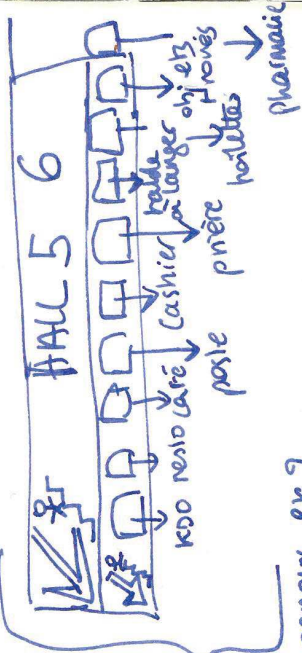 HALL 5 6
KDO
resto
café
poste
Cashier
prière
table
à langer
toilettes
objets
trouvés
pharmacie